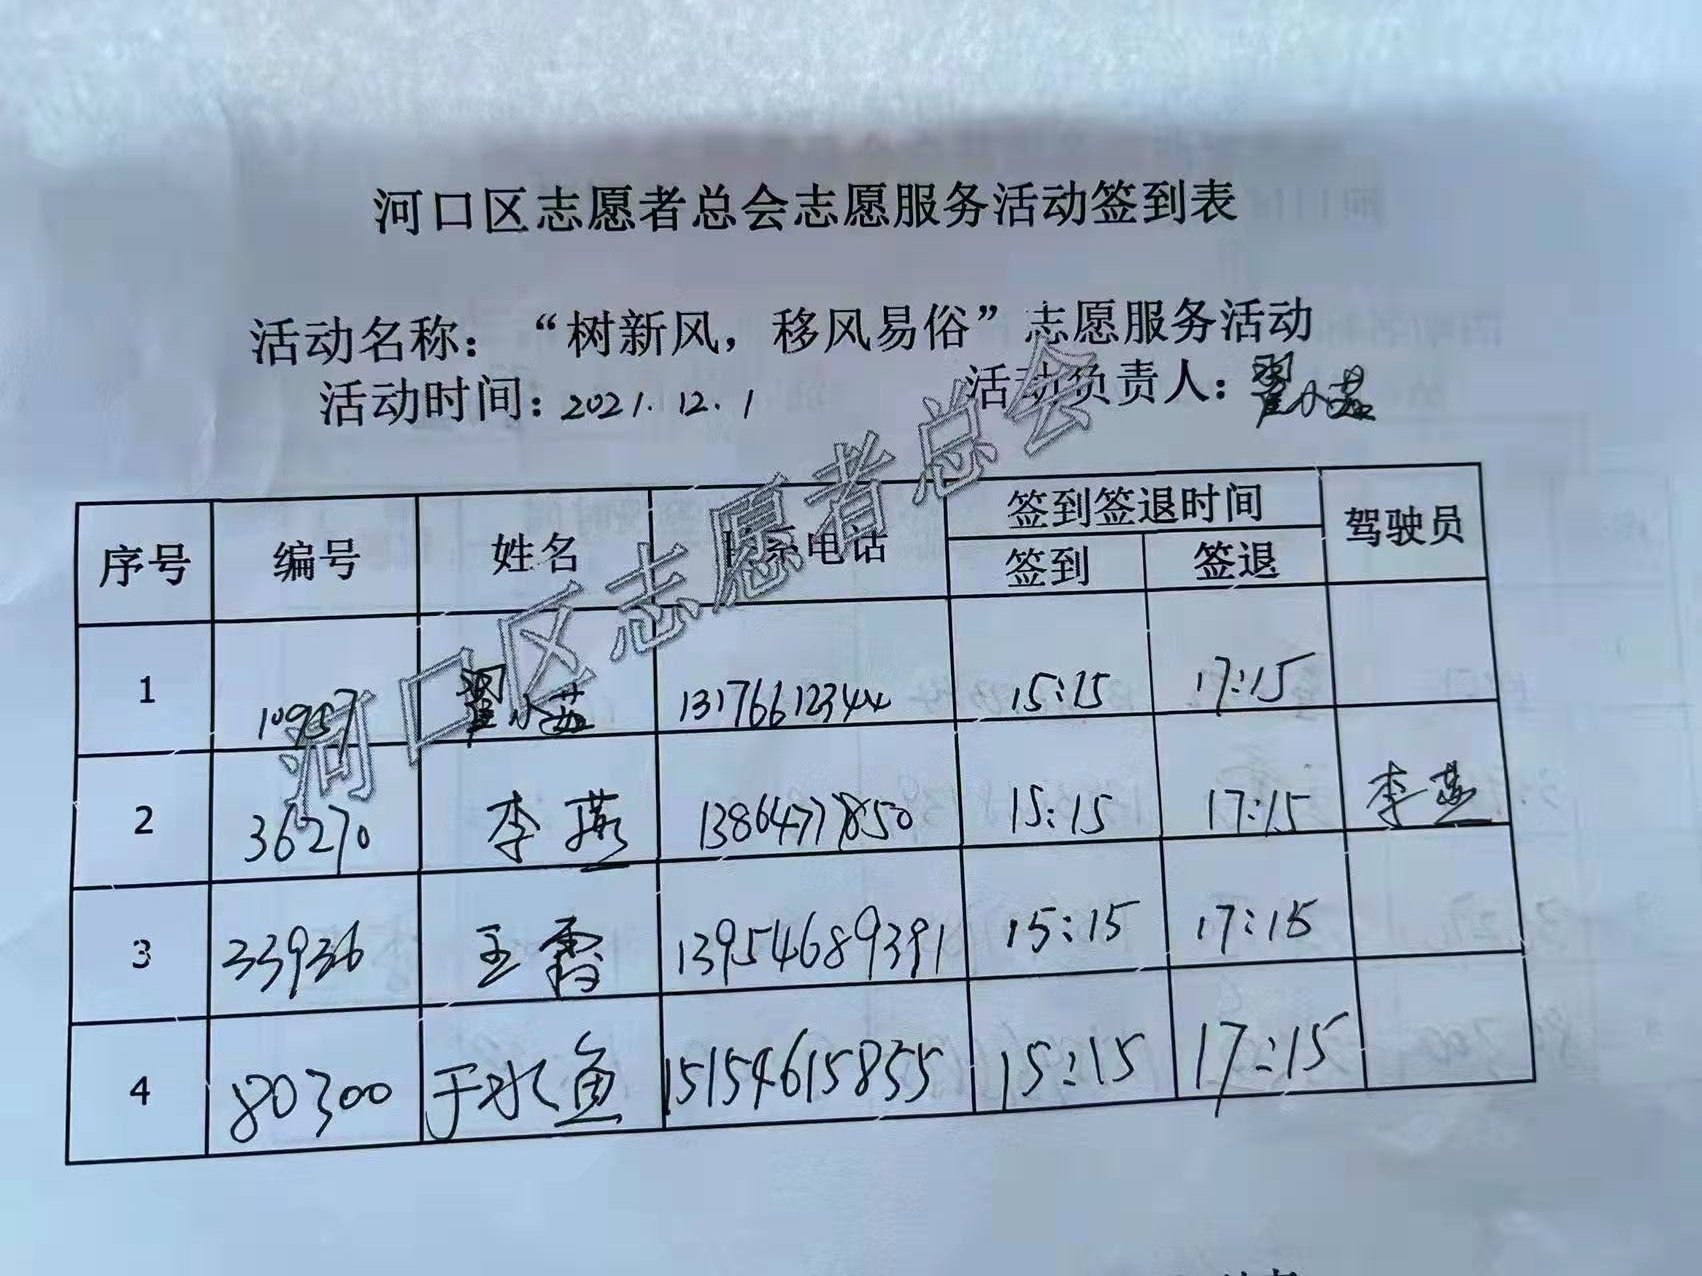 河口区志愿者总会志愿服务活动签到表
活动名称：“树新风，移风易俗”志愿服务活动
活动时间：2021.12.1 活动负责人：翟小茹
序号 编号 姓名 联系电话 签到签退时间 驾驶员
签到 签退
1 10957 翟小茹 13176612344 15:15 17:15
2 36270 李燕 13864777850 15:15 17:15 李燕
3 33936 王霄 13954689391 15:15 17:15
4 80300 于水鱼 15154615855 15:15 17:15
河口区志愿者总会